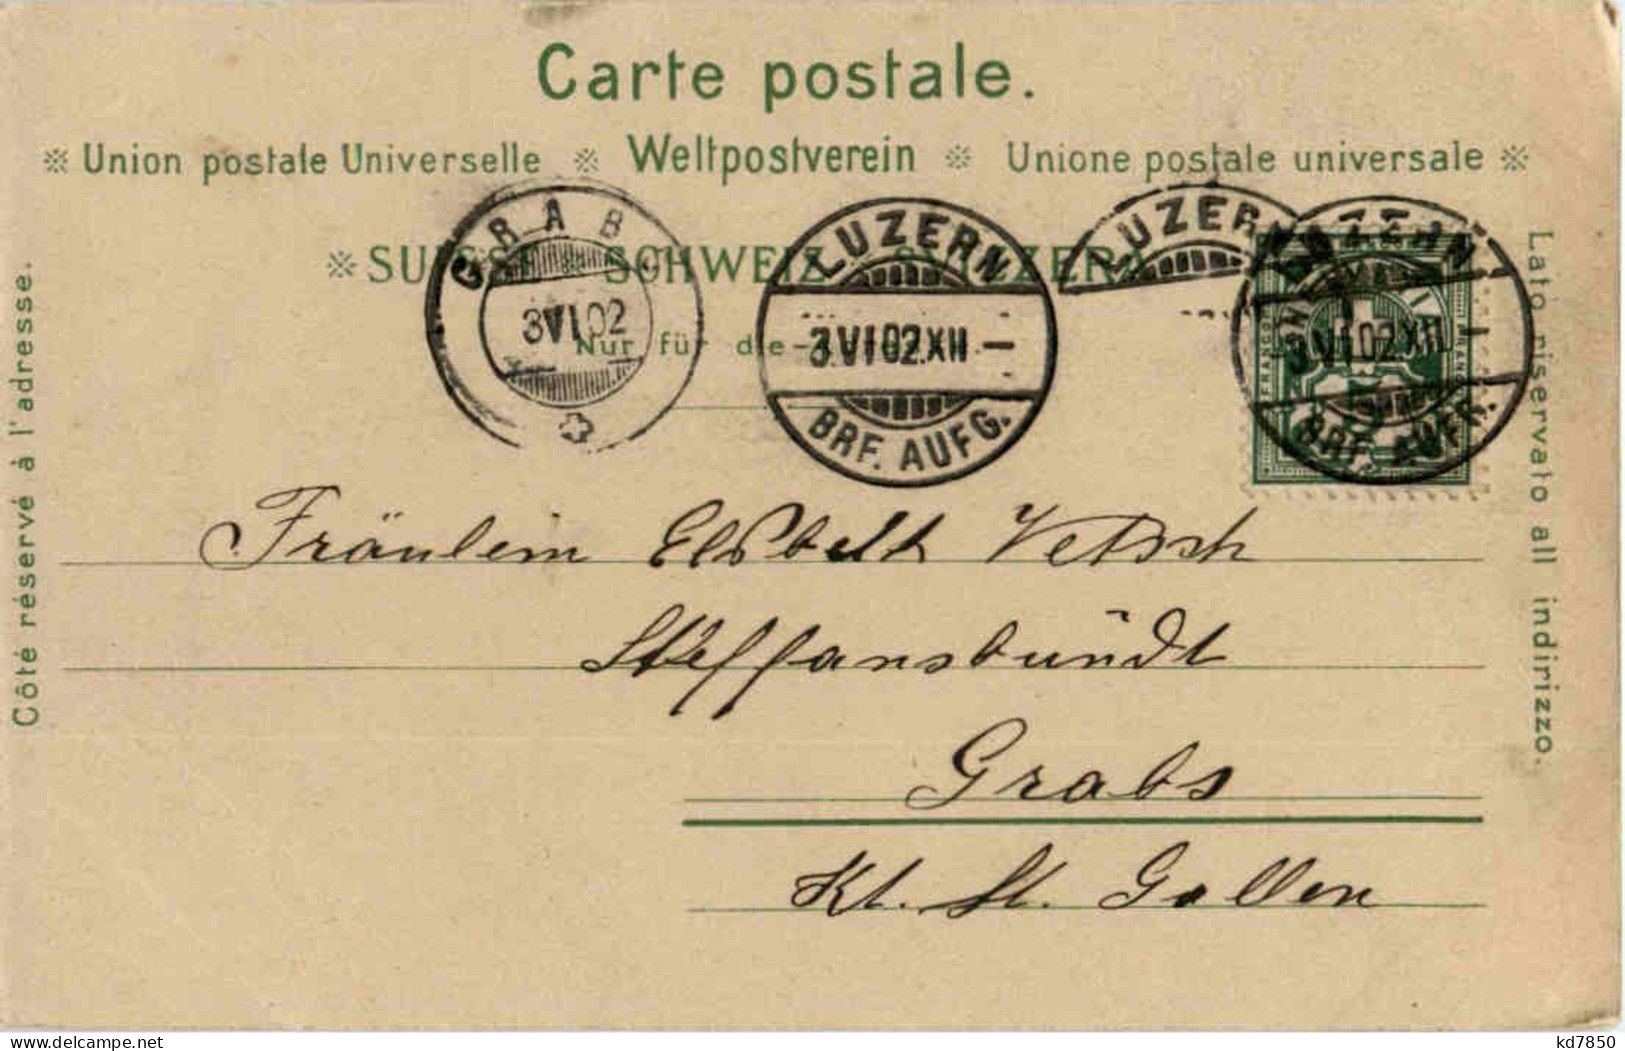 Carte postale.
※ Union postale Universelle ※ Weltpostverein ※ Unione postale universale ※
※ SUISSE SCHWEIZ SVIZZERA
Nur für die
GRABS
3 VI 02
LUZERN
3.VI 02.XII –
BRF. AUFG.
LUZERN
LUZERN
3.VI 02.XII
BRF. AUFG.
FRANCO
Côté réservé à l'adresse.
Lato riservato all indirizzo.
Fräulein Elsbeth Vetsch
Steffansbündt
Grabs
Kt. St. Gallen
kd7850